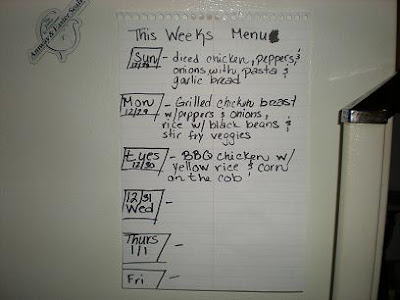 This Weeks Menu
Sun - diced chicken, peppers &
12/28 onions with pasta &
garlic bread
Mon - Grilled chicken breast
12/29 w/peppers & onions,
rice w/ black beans &
stir fry veggies
Tues - BBQ chicken w/
12/30 yellow rice & corn
on the cob
12/31 -
Wed
Thurs -
1/1
Fri -